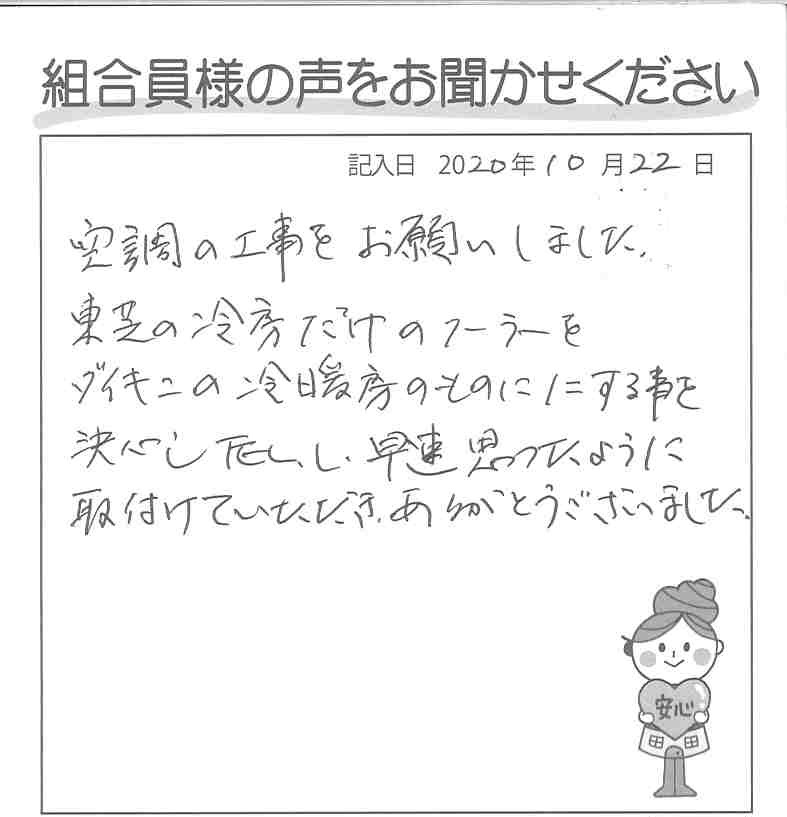 組合員様の声をお聞かせください
記入日 2020年10月22日
空調の工事をお願いしました。
東芝の冷房だけのクーラーを
ダイキンの冷暖房のものにする事を
決心し 早速思ったように
取付けていただき、ありがとうございました。
安心